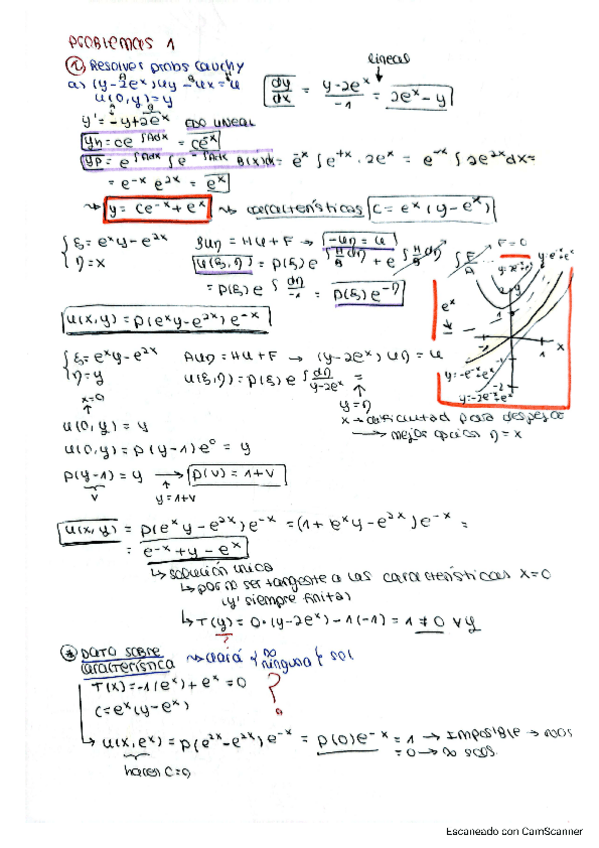 PROBLEMAS 1
① Resolver probs Cauchy
lineal
a) (y-2eˣ)uy - ux = u
u(0,y)=y
dy/dx = y-2eˣ/-1 = 2eˣ-y
y' = -y+2eˣ EDO LINEAL
yh = ce^∫Adx = ce⁻ˣ
yp = e^∫Adx ∫e^-∫Adx B(x)dx = e⁻ˣ ∫e⁺ˣ · 2eˣ = e⁻ˣ ∫2e²ˣdx =
= e⁻ˣ e²ˣ = eˣ
y = ce⁻ˣ+eˣ características C = eˣ(y-eˣ)
{ξ=eˣy-e²ˣ
η=x
Buη = Hu+F → -uη = u
F=0
u(ξ,η) = p(ξ)e^∫H/B dη + e^∫H/B dη ∫F/A
= p(ξ)e^∫dη/-1 = p(ξ)e^-η
u(x,y) = p(eˣy-e²ˣ)e⁻ˣ
{ξ=eˣy-e²ˣ
η=y
Auη = Hu+F → (y-2eˣ)uη = u
u(ξ,η) = p(ξ)e^∫dη/y-2eˣ =
y=η
x → dificultad para despejar
→ mejor opción η=x
x=0
u(0,y) = y
u(0,y) = p(y-1)e⁰ = y
p(y-1) = y → p(v) = 1+v
v
y=1+v
u(x,y) = p(eˣy-e²ˣ)e⁻ˣ = (1+eˣy-e²ˣ)e⁻ˣ =
= e⁻ˣ+y-eˣ
↳ solución única
↳ por no ser tangente a las características x=0
(y' siempre finita)
↳ T(y) = 0·(y-2eˣ)-1(-1) = 1 ≠ 0 ∀y
?
* Dato sobre
característica
T(x) = -1(eˣ)+eˣ = 0
?
C=eˣ(y-eˣ)
↳ u(x,eˣ) = p(e²ˣ-e²ˣ)e⁻ˣ = p(0)e⁻ˣ = 1 → Imposible →
= 0 → ∞ sols.
hacer C=0
Escaneado con CamScanner